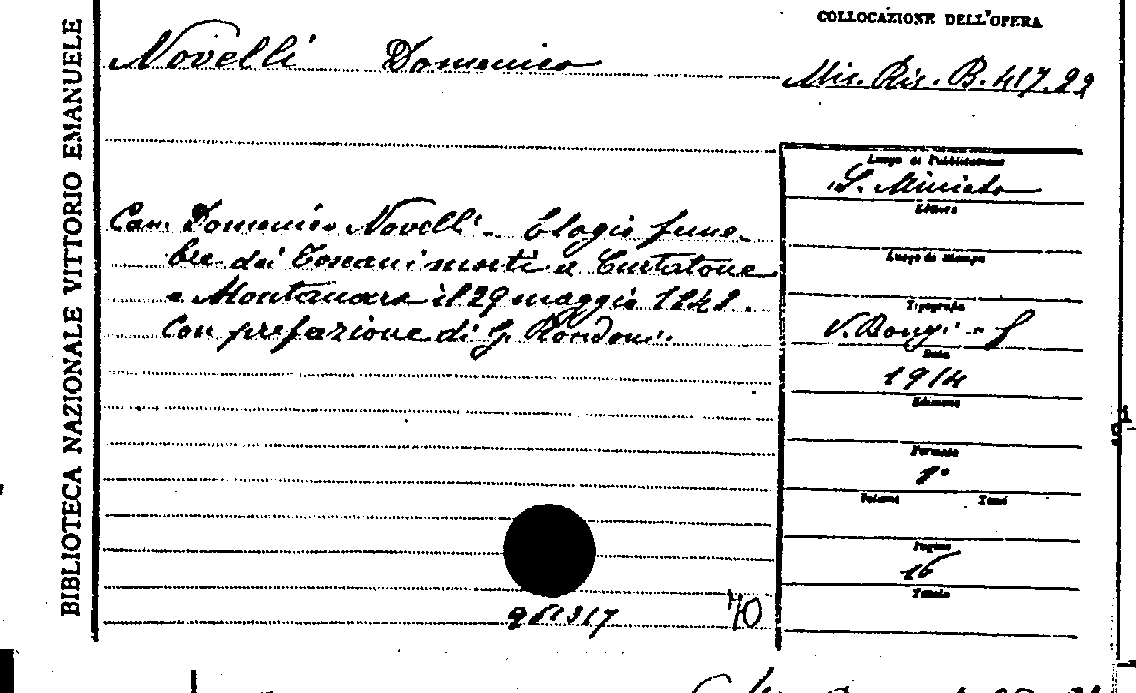 BIBLIOTECA NAZIONALE VITTORIO EMANUELE
COLLOCAZIONE DELL'OPERA
Novelli Domenico
Mis. Ris. B. 417.22
Luogo di Pubblicazione
S. Miniato
Editore
Luogo di Stampa
Tipografo
V. Bongi
Data
1914
Edizione
Formato
8°
Volumi Tomi
Pagine
16
Tavole
Can. Domenico Novelli - Elogio fune-
bre dei Toscani morti a Curtatone
e Montanara il 29 maggio 1848.
Con prefazione di G. Rondoni.
70